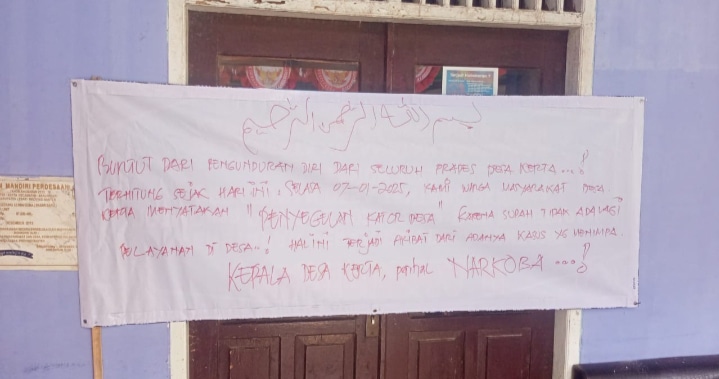 بسم الله الرحمن الرحيم
BUNTUT DARI PENGUNDURAN DIRI DARI SELURUH PRADES DESA KERTA....!
TERHITUNG SEJAK HARI INI, SELASA 07-01-2025, KAMI WARGA MASYARAKAT DESA.
KERTA MENYATAKAN "PENYEGELAN KATOR DESA" KARENA SUDAH TIDAK ADA LAGI
PELAYANAN DI DESA..! HAL INI TERJADI AKIBAT DARI ADANYA KASUS YG MENIMPA.
KEPALA DESA KERTA, perihal NARKOBA ....!
MANDIRI PERDESAAN